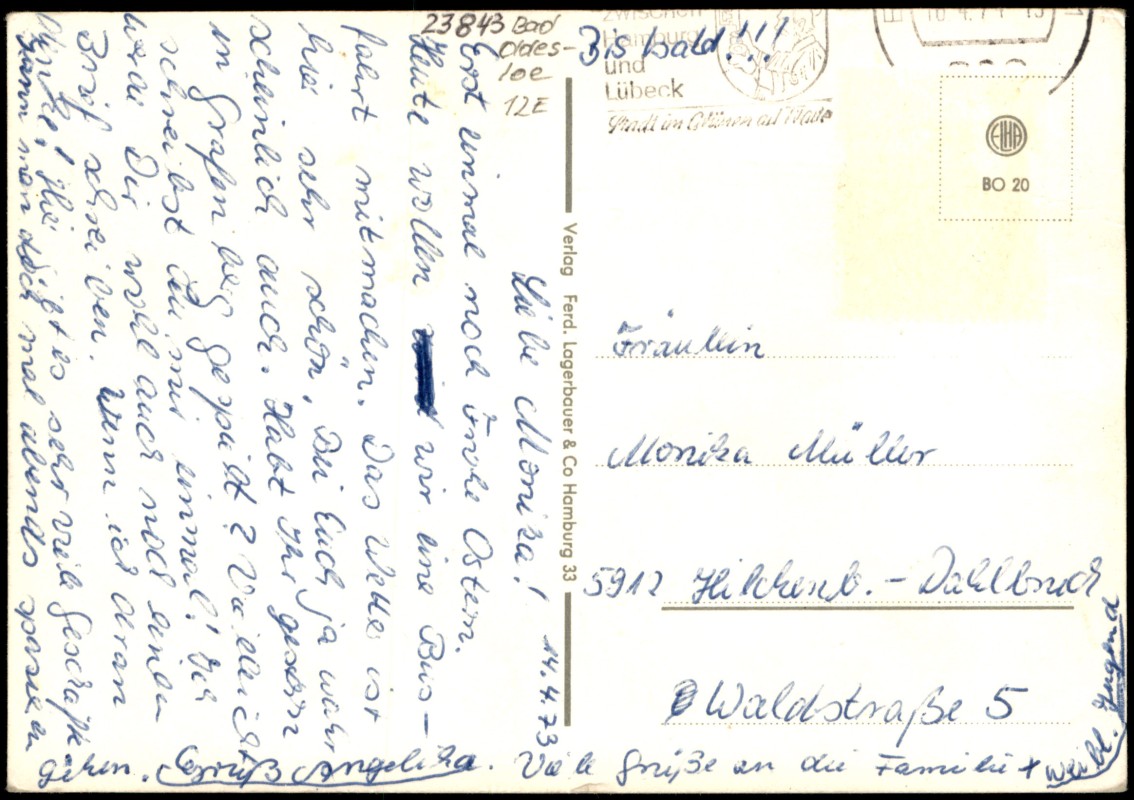 23843 Bad
Oldes-
loe
12E
14.4.73
Liebe Monika!
Erst einmal noch Frohe Ostern.
Heute wollen wir eine Bus-
fahrt mitmachen. Das Wetter ist
hier sehr schön, Bei Euch ja wahr
scheinlich auch. Habt Ihr gestern
in Grafen berg gespielt? Vielleicht
schreibst Du mir einmal! Ich
werde Dir wohl auch noch einen
Brief schreiben. Wenn ich dran
denke! Hier gibt es sehr viele Geschäfte
Kann man doch mal abends spazieren
gehen. Gruß Angelika. Viele Grüße an die Familie + weibl. Jugend
Bis bald!!!
zwischen
Hamburg
und
Lübeck
Stadt im Grünen am Wasser
ELHA
BO 20
Verlag Ferd. Lagerbauer & Co Hamburg 33
Fräulein
Monika Müller
5912 Hilchenb. - Dahlbruch
Waldstraße 5